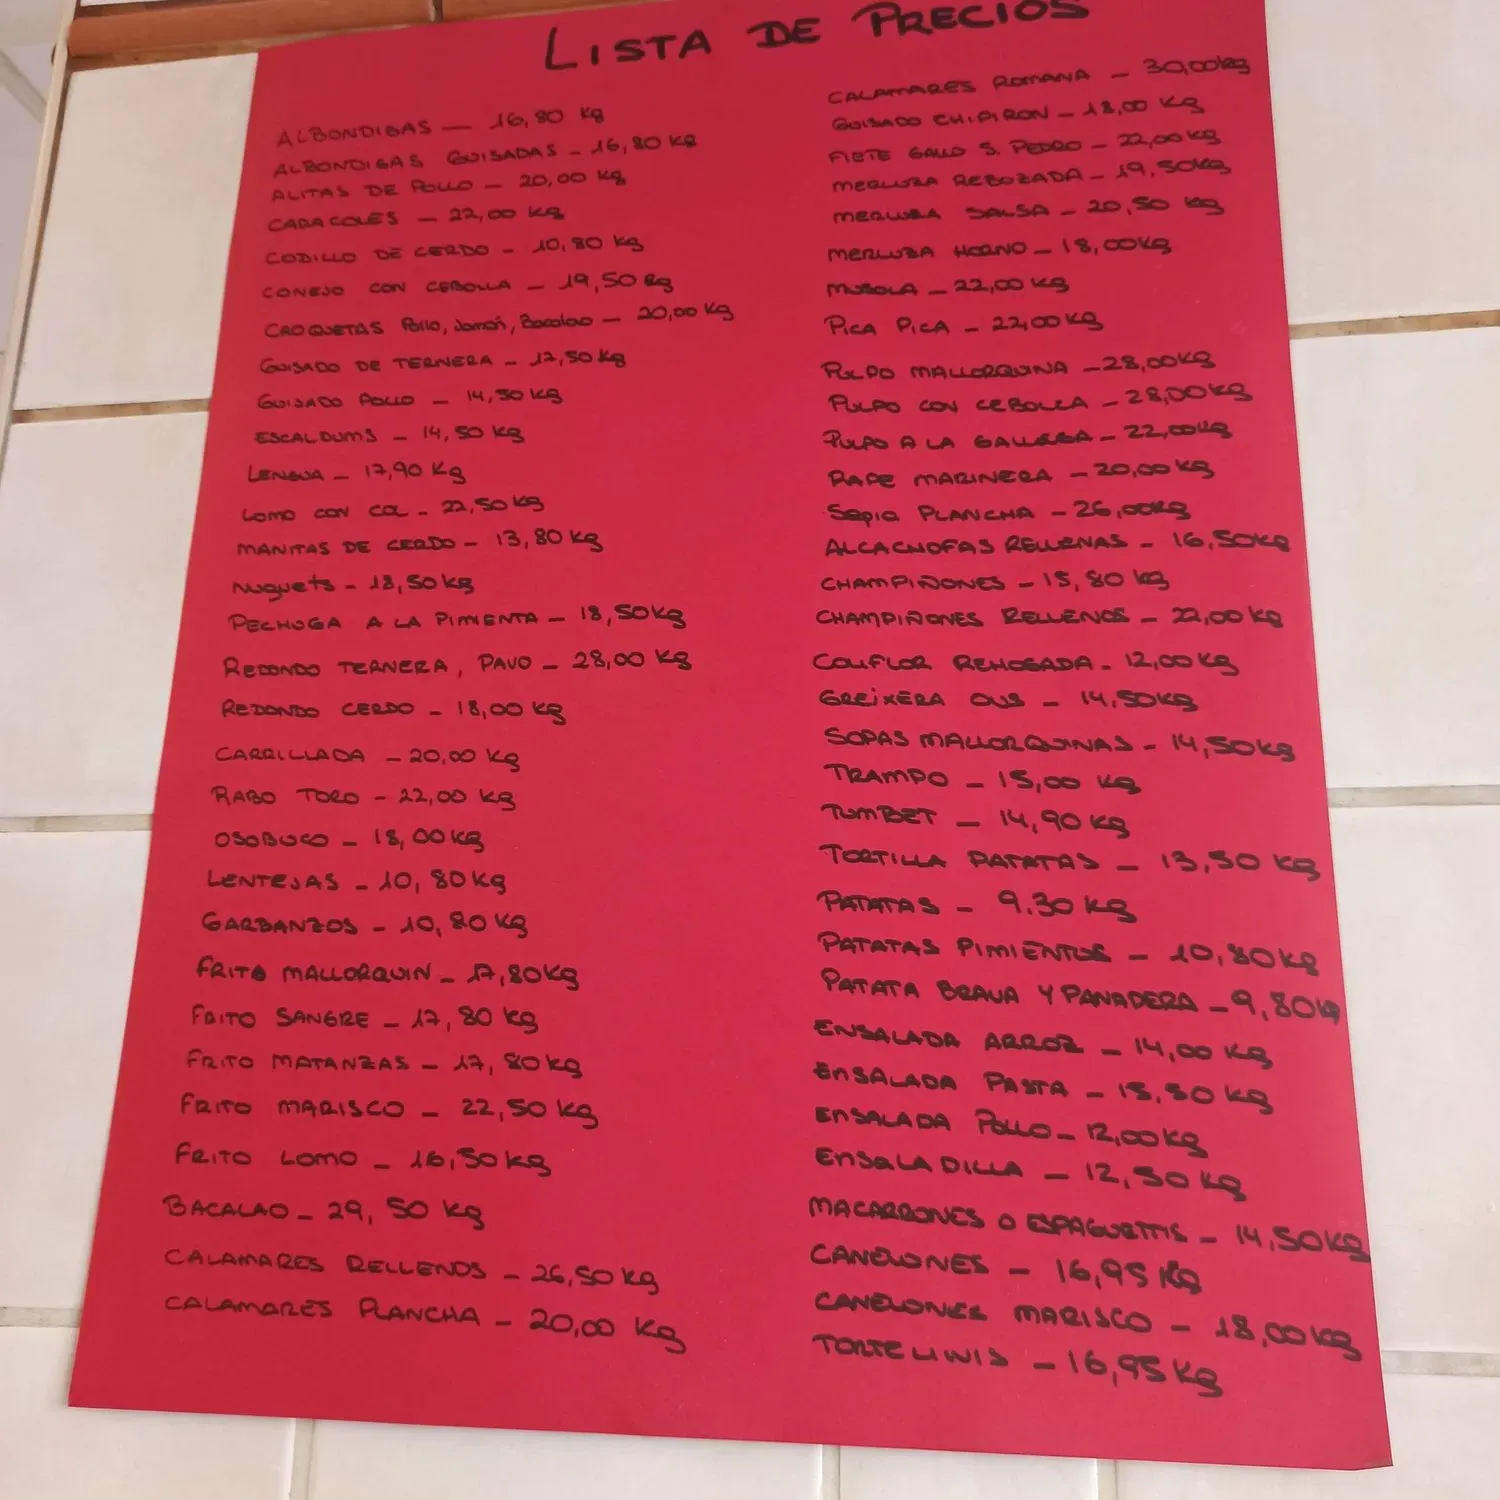 LISTA DE PRECIOS
ALBONDIGAS — 16,80 Kg
ALBONDIGAS GUISADAS - 16,80 Kg
ALITAS DE POLLO - 20,00 Kg
CARACOLES - 22,00 Kg
CODILLO DE CERDO - 10,80 Kg
CONEJO CON CEBOLLA - 19,50 Kg
CROQUETAS Pollo, Jamón, Bacalao - 20,00 Kg
GUISADO DE TERNERA - 17,50 Kg
GUISADO POLLO - 14,50 Kg
ESCALDUMS - 14,50 Kg
LENGUA - 17,90 Kg
LOMO CON COL - 22,50 Kg
MANITAS DE CERDO - 13,80 Kg
NUGUETS - 18,50 Kg
PECHUGA A LA PIMIENTA - 18,50 Kg
REDONDO TERNERA, PAVO - 28,00 Kg
REDONDO CERDO - 18,00 Kg
CARRILLADA - 20,00 Kg
RABO TORO - 22,00 Kg
OSOBUCO - 18,00 Kg
LENTEJAS - 10,80 Kg
GARBANZOS - 10,80 Kg
FRITO MALLORQUIN - 17,80 Kg
FRITO SANGRE - 17,80 Kg
FRITO MATANZAS - 17,80 Kg
FRITO MARISCO - 22,50 Kg
FRITO LOMO - 16,50 Kg
BACALAO - 29,50 Kg
CALAMARES RELLENOS - 26,50 Kg
CALAMARES PLANCHA - 20,00 Kg
CALAMARES ROMANA - 30,00 Kg
GUISADO CHIPIRON - 18,00 Kg
FIETE GALLO S. PEDRO - 22,00 Kg
MERLUZA REBOZADA - 19,50 Kg
MERLUZA SALSA - 20,50 Kg
MERLUZA HORNO - 18,00 Kg
MUSOLA - 22,00 Kg
PICA PICA - 22,00 Kg
PULPO MALLORQUINA - 28,00 Kg
PULPO CON CEBOLLA - 28,00 Kg
PULPO A LA GALLEGA - 22,00 Kg
RAPE MARINERA - 20,00 Kg
SEPIA PLANCHA - 26,00 Kg
ALCACHOFAS RELLENAS - 16,50 Kg
CHAMPIÑONES - 15,80 Kg
CHAMPIÑONES RELLENOS - 22,00 Kg
COLIFLOR REHOGADA - 12,00 Kg
GREIXERA OUS - 14,50 Kg
SOPAS MALLORQUINAS - 14,50 Kg
TRAMPO - 15,00 Kg
TUMBET - 14,90 Kg
TORTILLA PATATAS - 13,50 Kg
PATATAS - 9.30 Kg
PATATAS PIMIENTOS - 10,80 Kg
PATATA BRAVA Y PANADERA - 9,80 Kg
ENSALADA ARROZ - 14,00 Kg
ENSALADA PASTA - 15,50 Kg
ENSALADA POLLO - 12,00 Kg
ENSALADILLA - 12,50 Kg
MACARRONES O ESPAGUETTIS - 14,50 Kg
CANELONES - 16,95 Kg
CANELONES MARISCO - 18,00 Kg
TORTELINIS - 16,95 Kg